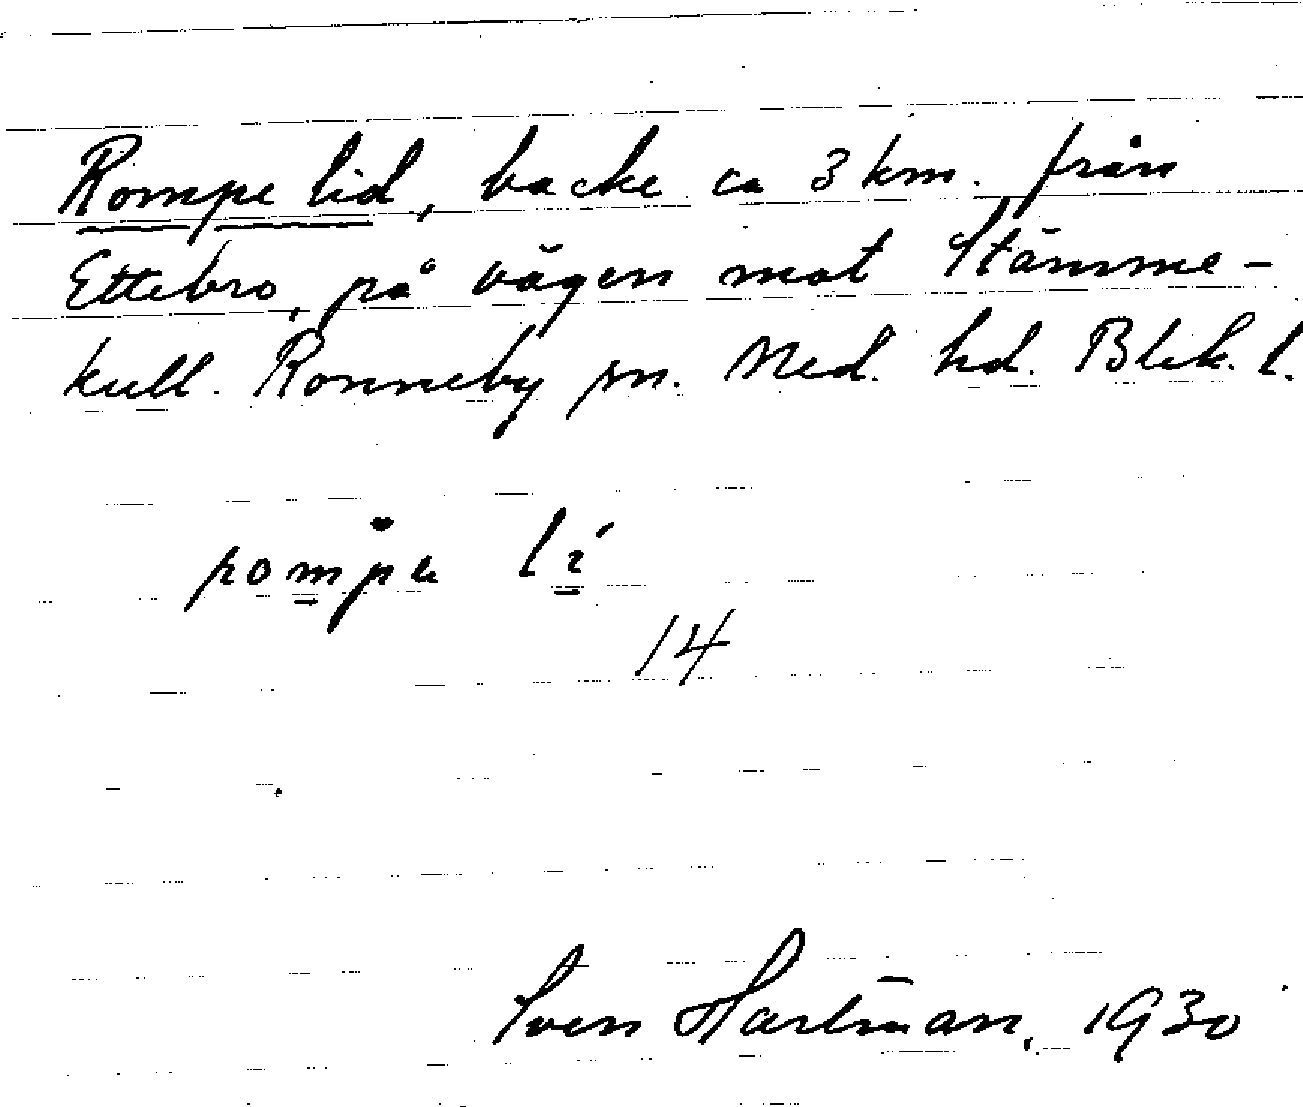 Rompe lid, backe ca 3 km. från
Ettebro, på vägen mot Stämme-
kull. Ronneby sn. Med. hd. Blek. l.
lí
14
Sven Hartman, 1930